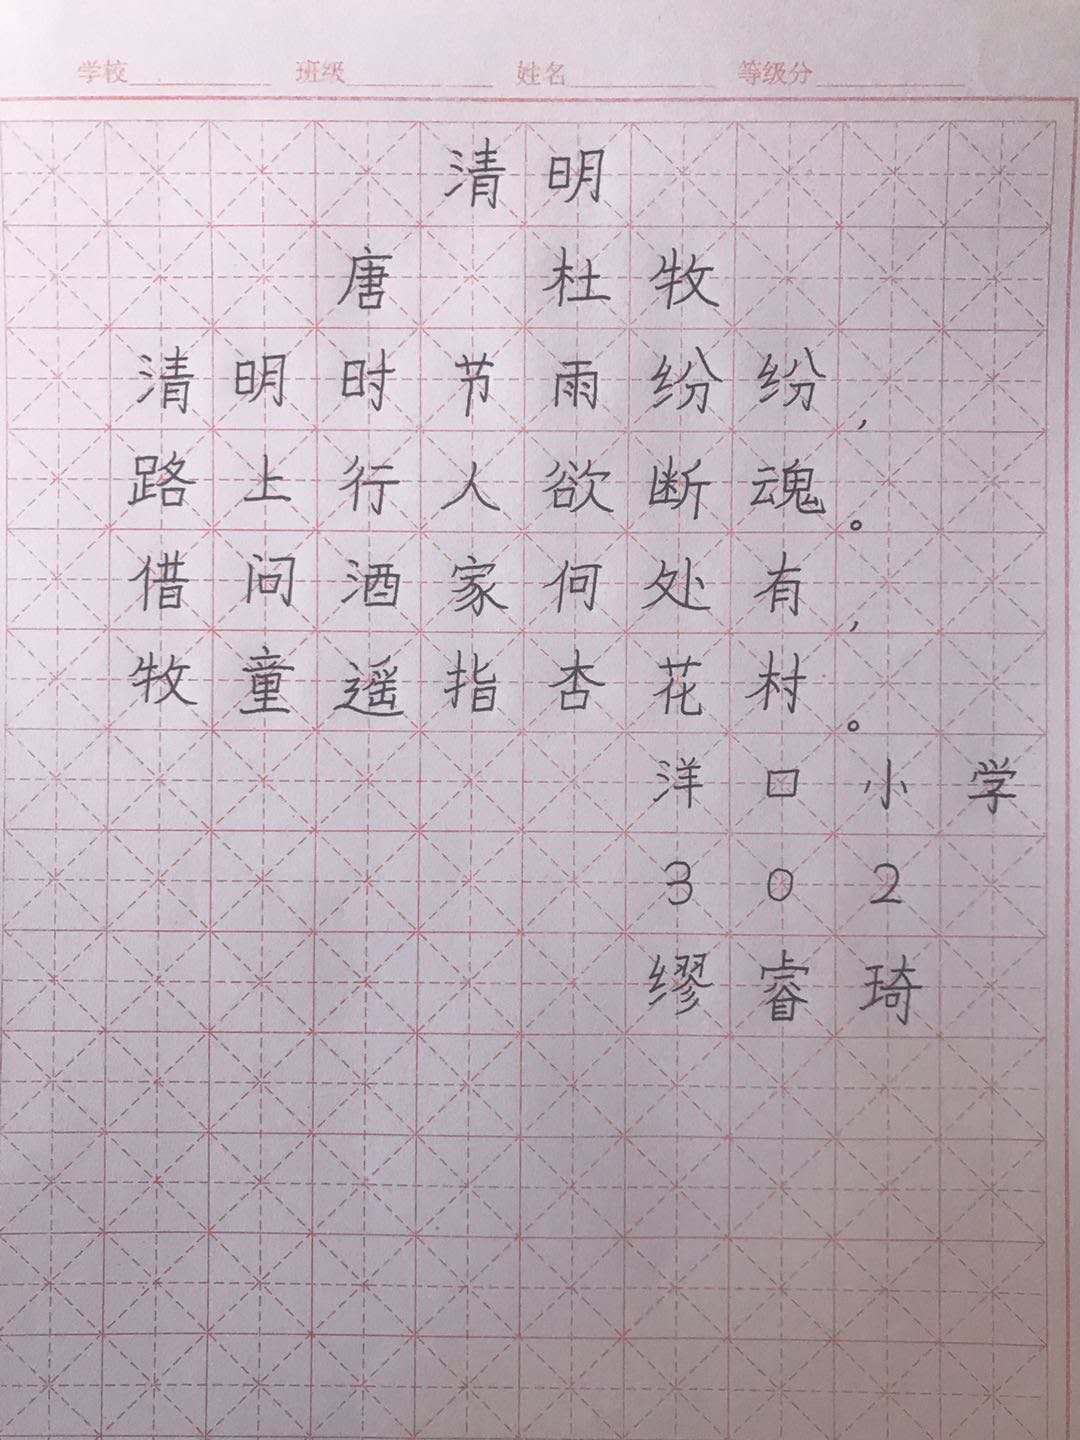 学校 班级 姓名 等级分
清明
唐 杜牧
清明时节雨纷纷，
路上行人欲断魂。
借问酒家何处有，
牧童遥指杏花村。
洋口小学
302
缪睿琦